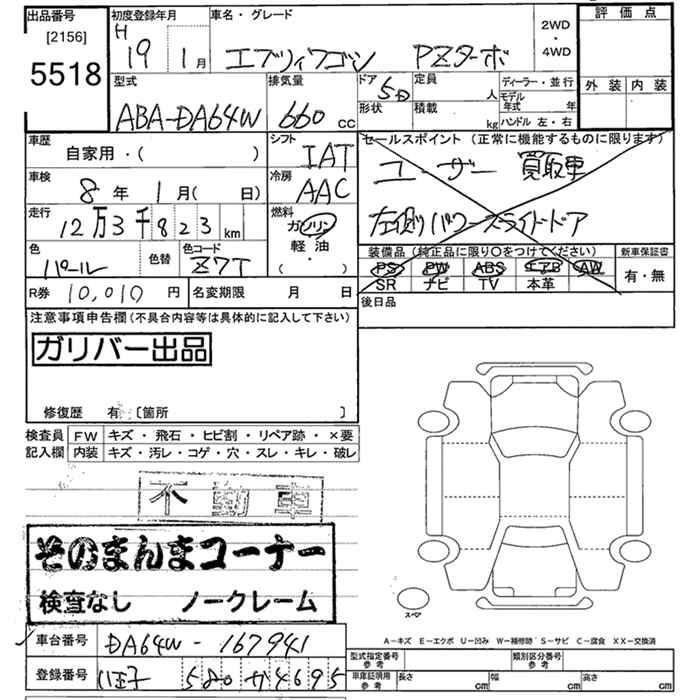 出品番号 初度登録年月 車名・グレード 2WD・4WD 評価点
[2156] H 19年 1月 エブリィワゴン PZターボ
5518
型式 排気量 ドア 5D 定員 人 ディーラー・並行 外装 内装
ABA-DA64W 660cc 形状 積載 kg モデル年式 年
ハンドル 左・右
車歴 シフト セールスポイント(正常に機能するものに限ります)
自家用・( ) IAT ユーザー買取車
車検 冷房
8年 1月( 日) AAC 左側パワースライドドア
走行 燃料
12万3千823km ガソリン
軽油
・( )
色 色替 色コード 装備品(純正品に限り○をつけてください) 新車保証書
パール Z7T PS PW ABS エアB AW 有・無
SR ナビ TV 本革
R券 10,010円 名変期限 月 日 後日品
注意事項申告欄(不具合内容等は具体的に記入して下さい)
ガリバー出品
修復歴 有 [箇所 ]
検査員 FW キズ・飛石・ヒビ割・リペア跡・×要
記入欄 内装 キズ・汚レ・コゲ・穴・スレ・キレ・破レ
不動車
そのまんまコーナー
検査なし ノークレーム
スペア
A-キズ E-エクボ U-凹み W-補修跡 S-サビ C-腐食 XX-交換済
車台番号 DA64W-167941 型式指定番号 参考 類別区分番号 参考
登録番号 八王子 580 か 4695 車庫証明用 参考 長さ cm 幅 cm 高さ cm